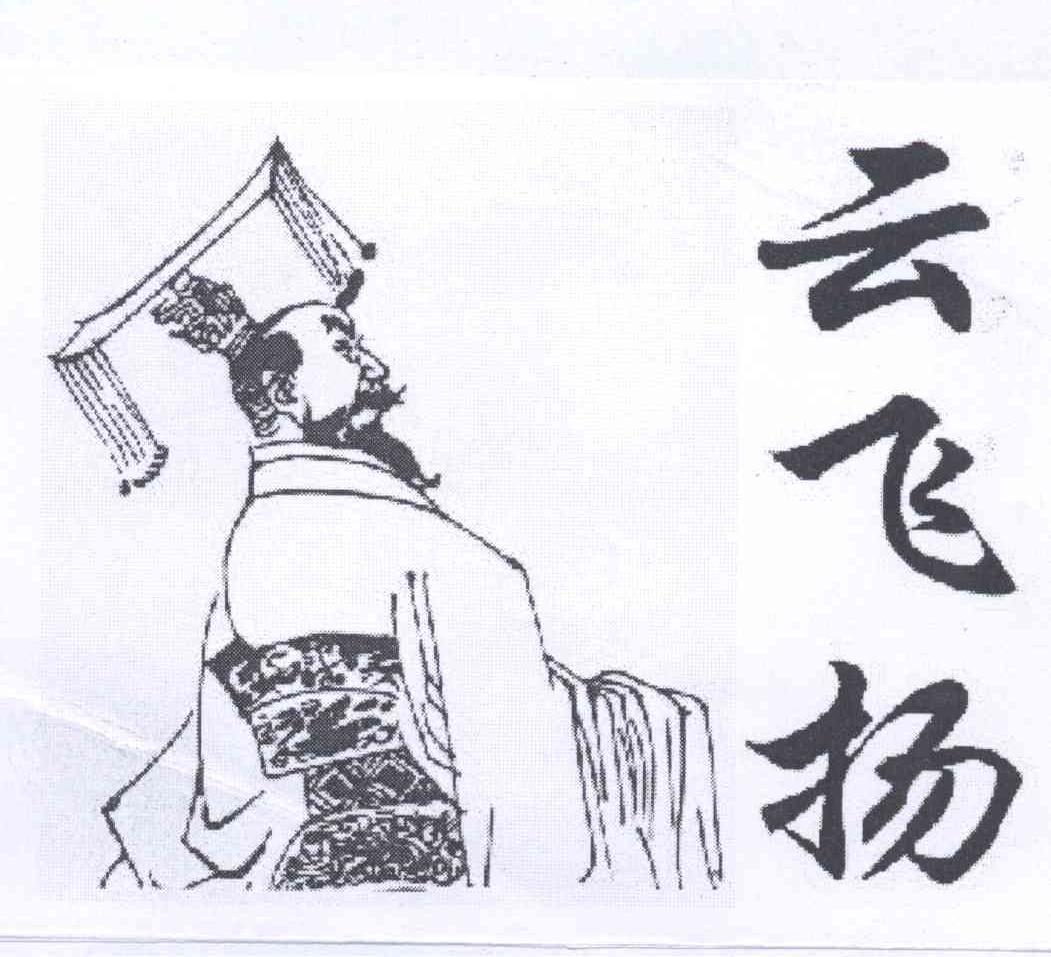 云飞扬